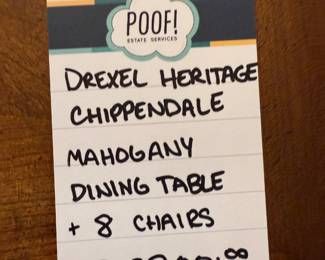 POOF!
ESTATE SERVICES
DREXEL HERITAGE
CHIPPENDALE
MAHOGANY
DINING TABLE
+ 8 CHAIRS